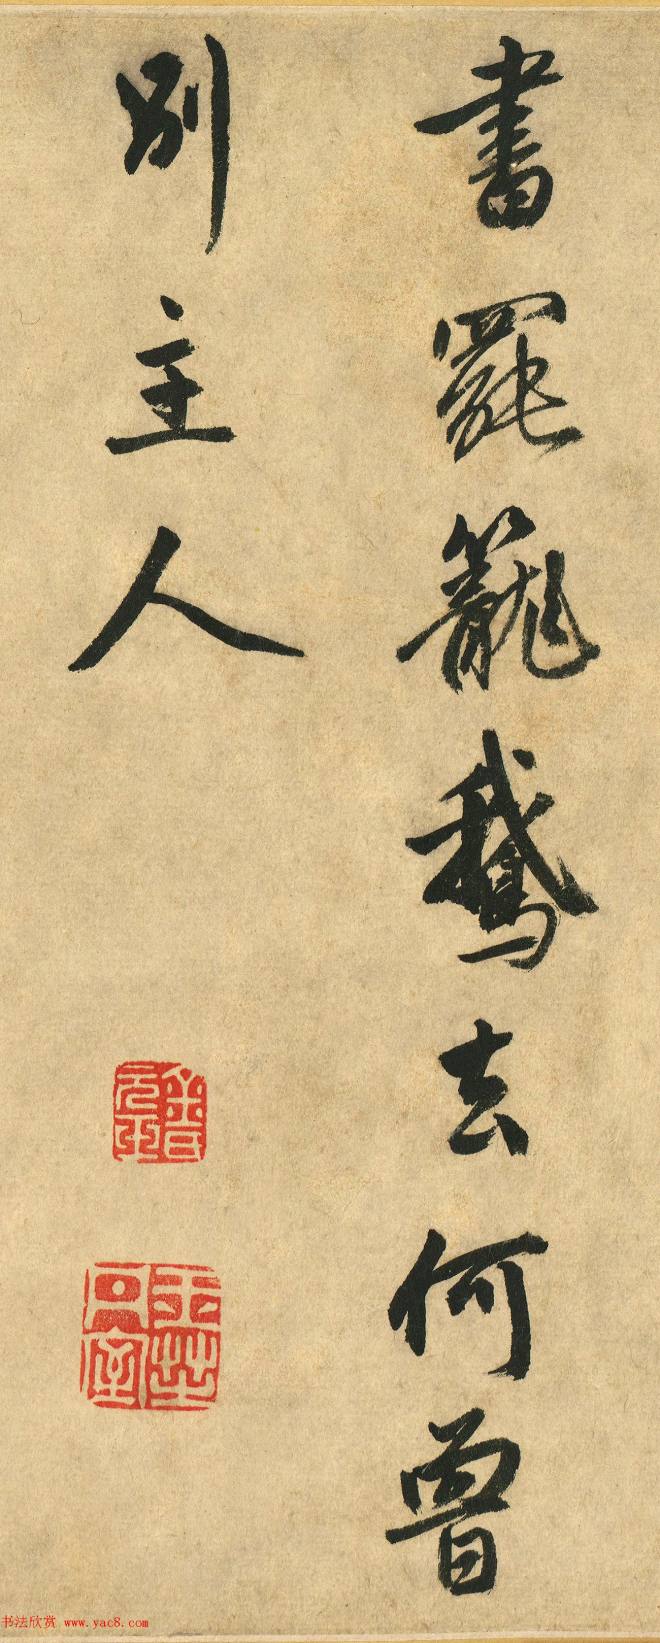 書罷籠鵝去何曾
別主人
书法欣赏 www.yac8.com